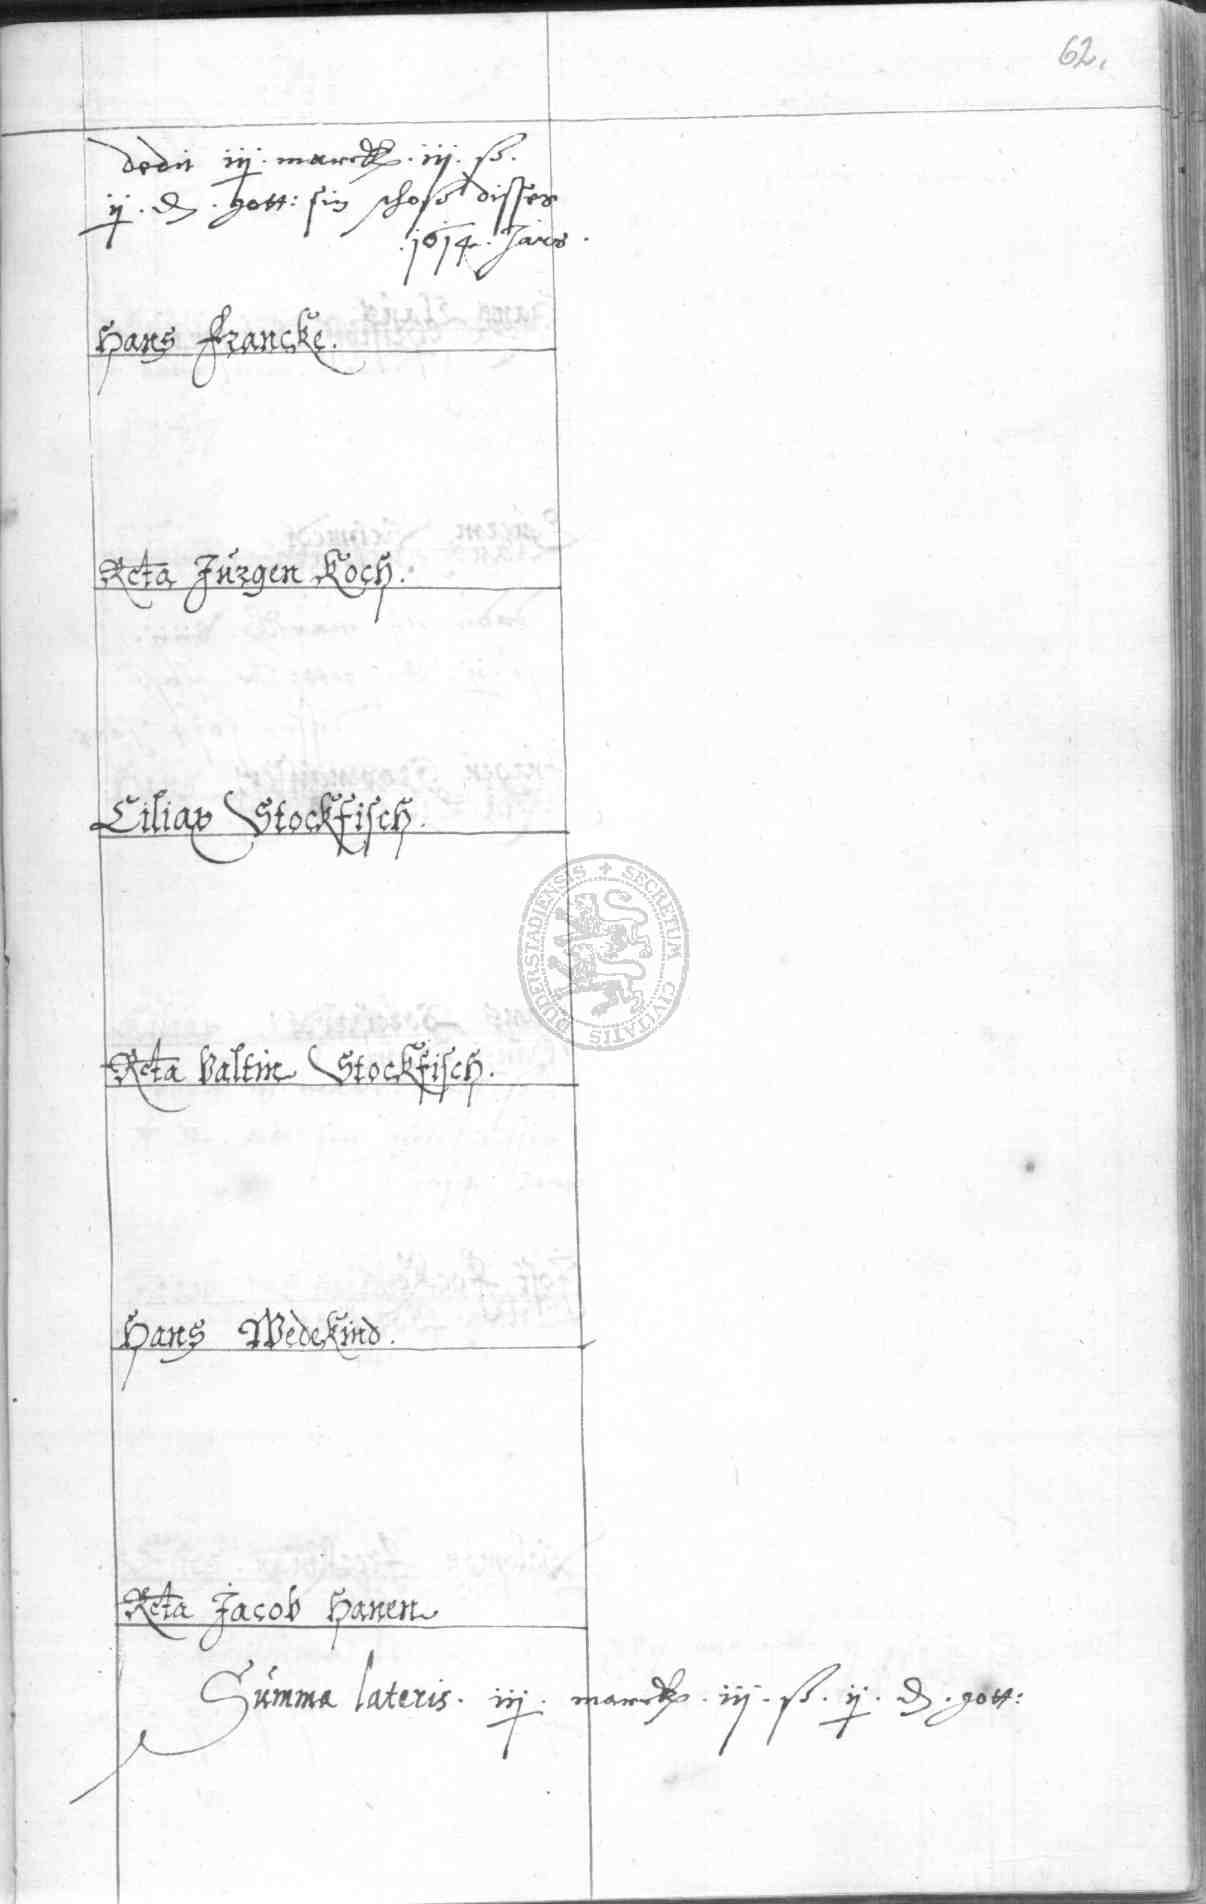 62.
dedit iij. marck. iij. ß.
ij. d. gott: sin schoss disses
.1614. Jars.
Hans Francke.
Rcta Jürgen Koch.
Ciliax Stockfisch.
Rcta Valtin Stockfisch.
Hans Wedekind.
Rcta Jacob Hanen
Summa lateris. iij. marck. iij. ß. ij. d. gott:
SECRETUM CIVITATIS DUDERSTADIENSIS